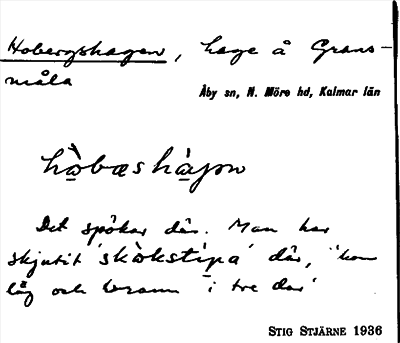 Hobergshagen, hage å Grans-
måla
Åby sn, N. Möre hd, Kalmar län
hò̲bæshà̲jən
Det spökar där. Man har
skjutit 'skòkstìpa' där, "hon
låg och brann i tre dar'
STIG STJÄRNE 1936